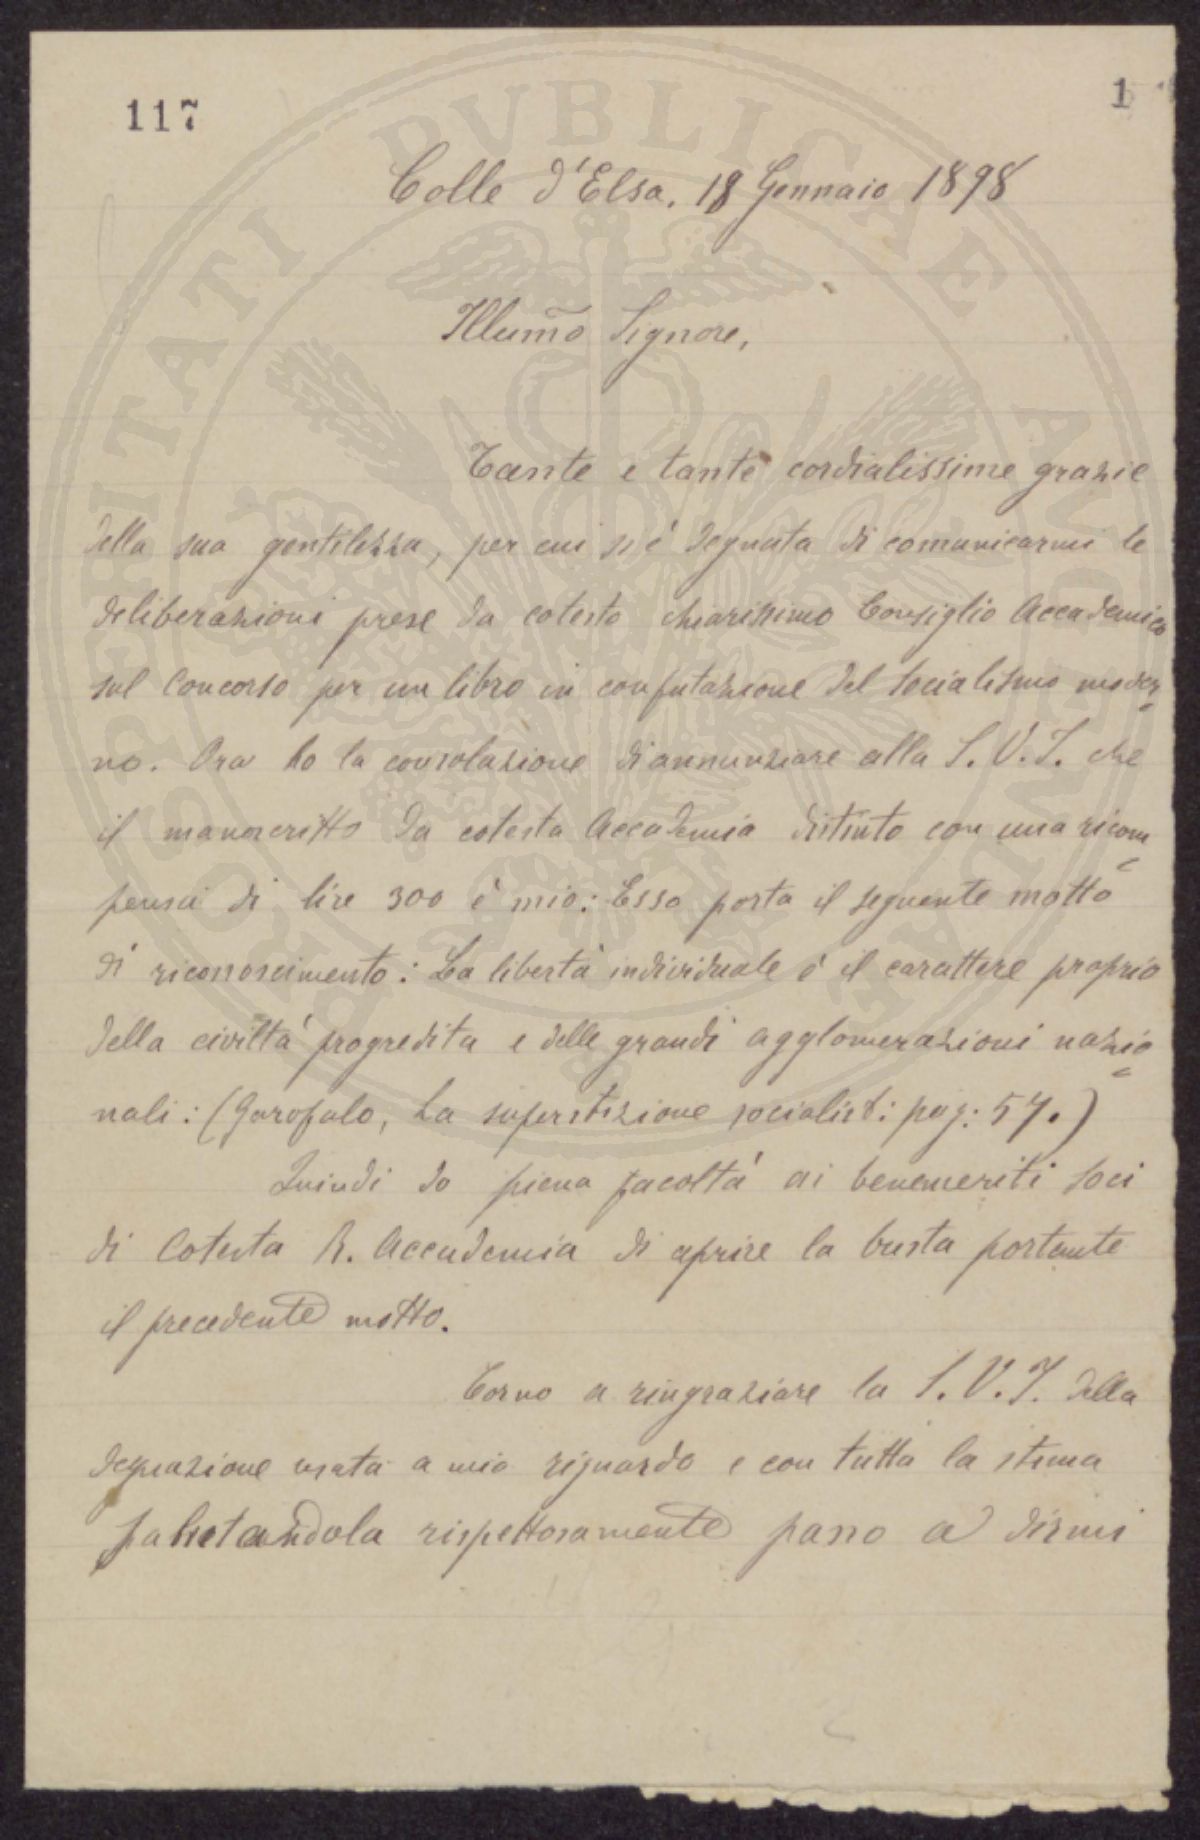 117
1
Colle d'Elsa, 18 Gennaio 1898
Illumo Signore,
Tante e tante cordialissime grazie
della sua gentilezza, per cui si è degnata di comunicarmi le
deliberazioni prese da cotesto chiarissimo Consiglio Accademico
sul Concorso per un libro in confutazione del Socialismo moder-
no. Ora ho la consolazione di annunziare alla S. V. I. che
il manoscritto da cotesta Accademia distinto con una ricom-
pensa di lire 300 è mio: Esso porta il seguente motto
di riconoscimento: La libertà individuale è il carattere proprio
della civiltà progredita e delle grandi agglomerazioni nazio-
nali: (Garofalo, La superstizione socialist: pag: 57.)
Quindi do piena facoltà ai benemeriti Soci
di Cotesta R. Accademia di aprire la busta portante
il precedente motto.
Torno a ringraziare la S. V. I. della
degnazione usata a mio riguardo e con tutta la stima
salutandola rispettosamente passo a dirmi
PROSPERITATI PVBLICAE AVGENDAE